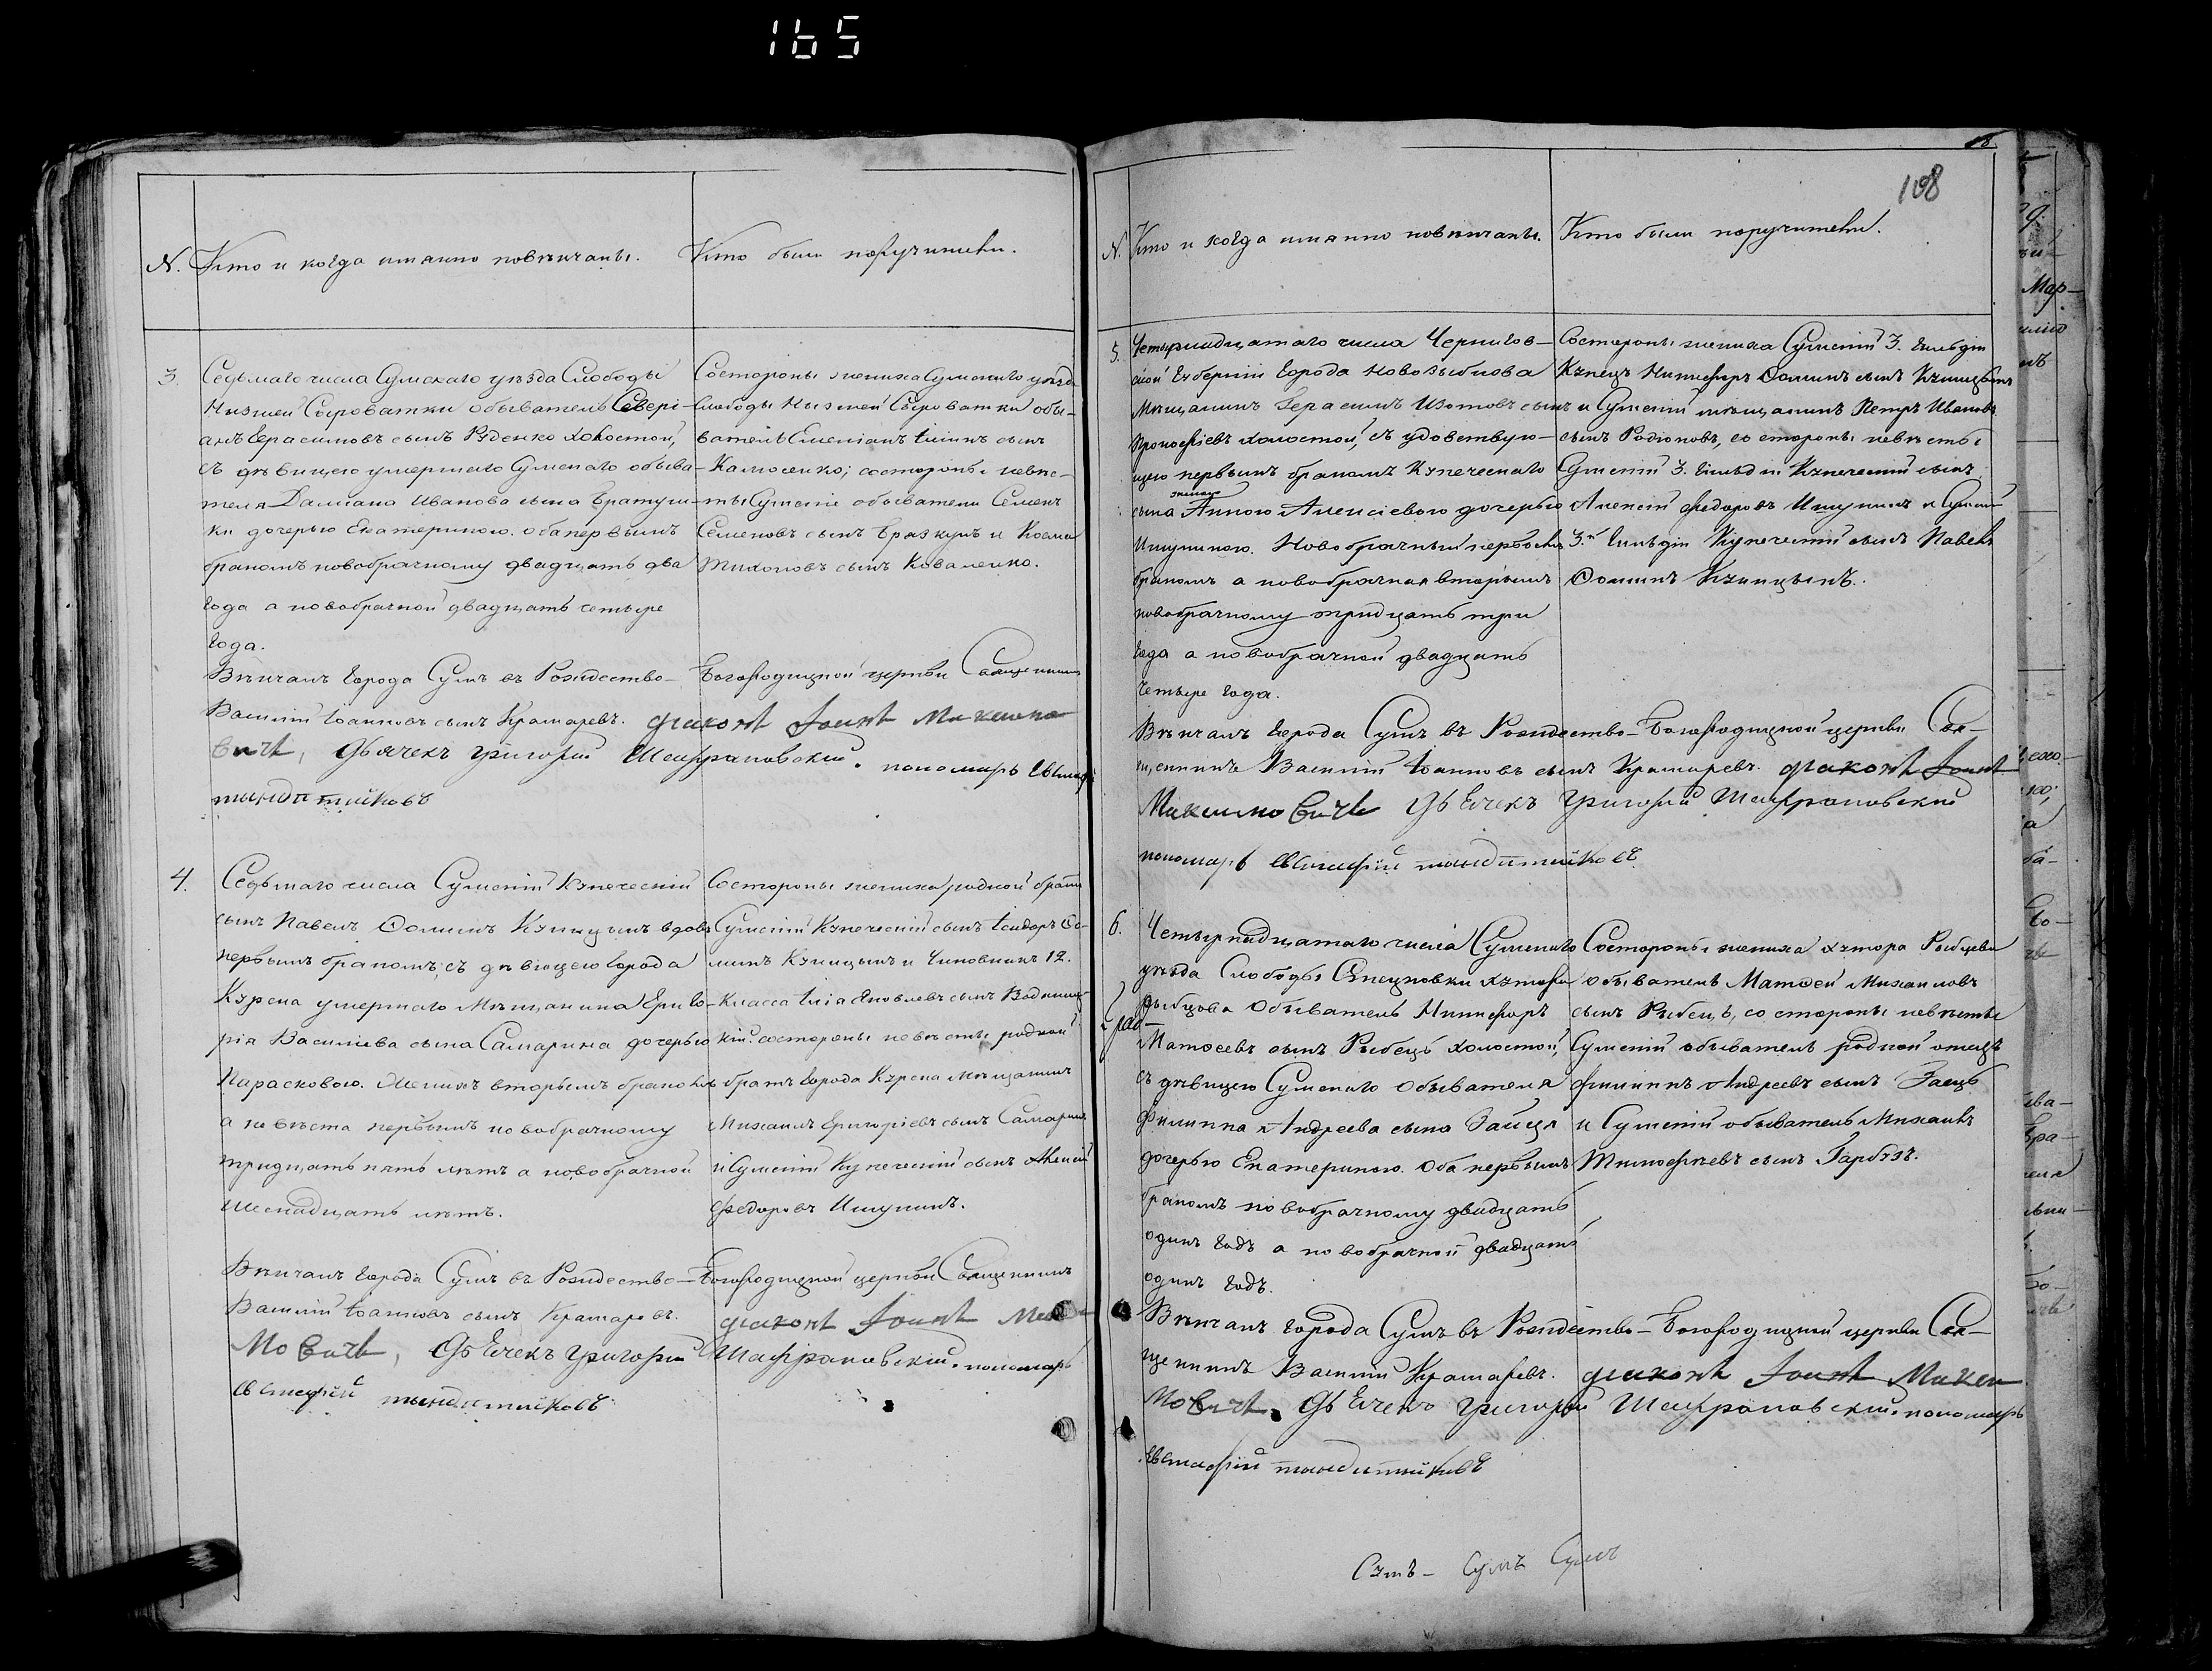 165
N. Кто и когда именно повѣнчаны. Кто были поручители.
3.
Седьмаго числа Сумскаго уѣзда Слободы
Низшей Сыроватки Обыватель Севері-
анъ Герасимовъ сынъ Руденко холостой,
съ дѣвицею умершаго Сумскаго обыва-
теля Даміана Иванова сына Братуш-
ки дочерью Екатериною. оба первымъ
бракомъ новобрачному двадцать два
года а новобрачной двадцать четыре
года.
Состороны жениха Сумскаго уѣзда
Слободы Низшей Сыроватки обы-
ватель Емеліанъ Іліинъ сынъ
состороны невѣс-
ты Сумскіе обыватели Семенъ
Семеновъ сынъ и Косма
Тихоновъ сынъ Коваленко.
Вѣнчалъ города Сумъ въ Рождество-Богородицкой церкви Священникъ
Василій Іоанновъ сынъ Крамаревъ. діаконъ Іоаннъ Максимо
вичъ, Дьячекъ Григорій Шафрановскій. пономарь Евстафій
4.
Седьмаго числа Сумскій Купеческій
сынъ Павелъ Фоминъ Купицынъ вдовъ
первымъ бракомъ, съ дѣвицею города
Курска умершаго Мѣщанина Григо-
рія Василіева сына Самарина дочерью
Парасковою. Женихъ вторымъ бракомъ
а невѣста первымъ новобрачному
тридцать пять лѣтъ а новобрачной
шеснадцать лѣтъ.
Состороны жениха родной братъ
Сумскій Купеческій сынъ Ісидоръ Фо-
минъ Купицынъ и Чиновникъ 12.
класса Іліа Яковлевъ сынъ
кій. состороны невѣсты родной
братъ города Курска Мѣщанинъ
Михаилъ Григоріевъ сынъ Самаринъ
и Сумскій Купеческій сынъ Алексій
Федоровъ Ишунинъ.
Вѣнчалъ города Сумъ въ Рождество-Богородицкой церкви Священникъ
Василій Іоанновъ сынъ Крамаревъ. діаконъ Іоаннъ Макси
мовичъ, Дьячекъ Григорій Шафрановскій. пономарь
Евстафій
18
108
N. Кто и когда именно повѣнчаны. Кто были поручители.
5.
Четырнадцатаго числа Чернигов-
ской Губерніи города Новозыбкова
Мѣщанинъ Герасимъ Изотовъ сынъ
Прокофіевъ холостой, съ удовствую-
щею первымъ бракомъ Купеческаго
женою
сына Анною Алексіевою дочерью
Ишуниною. Новобрачный первымъ
бракомъ а новобрачная вторымъ
новобрачному тридцать три
года а новобрачной двадцать
четыре года.
Состороны жениха Сумскій 3. гильдіи
Купецъ Никифоръ Фоминъ сынъ Купицынъ
и Сумскій мѣщанинъ Петръ Ивановъ
сынъ Родіоновъ, со стороны невѣсты
Сумскій 3. гильдіи Купеческій сынъ
Алексій Федоровъ Ишунинъ и Сумскій
3.й гильдіи Купеческій сынъ Павелъ
Фоминъ Купицынъ.
Вѣнчалъ города Сумъ въ Рождество-Богородицкой церкви Свя-
щенникъ Василій Іоанновъ сынъ Крамаревъ. діаконъ Іоаннъ
Максимовичъ Дьячекъ Григорій Шафрановскій
пономарь Евстафій
6.
Четырнадцатаго числа Сумскаго
уѣзда Слободы Степановки хутора
Рыбцова Обыватель Никифоръ
Матѳеевъ сынъ Рыбецъ холостой,
съ дѣвицею Сумскаго Обывателя
Филиппа Андреева сына Зайця
дочерью Екатериною. Оба первымъ
бракомъ новобрачному двадцать
одинъ годъ а новобрачной двадцать
одинъ годъ.
Состороны жениха хутора Рыбцева
обыватель Матѳей Михаиловъ
сынъ Рыбецъ, со стороны невѣсты
Сумскій обыватель родной отецъ
Филиппъ Андреевъ сынъ Заецъ
и Сумскій обыватель Михаилъ
Тимофѣевъ сынъ Гарбузъ.
Вѣнчалъ города Сумъ въ Рождество-Богородицкой церкви Свя-
щенникъ Василій Крамаревъ. діаконъ Іоаннъ Макси
мовичъ. Дьячекъ Григорій Шафрановскій. пономарь
Евстафій
Сумъ- Сумъ Сумъ